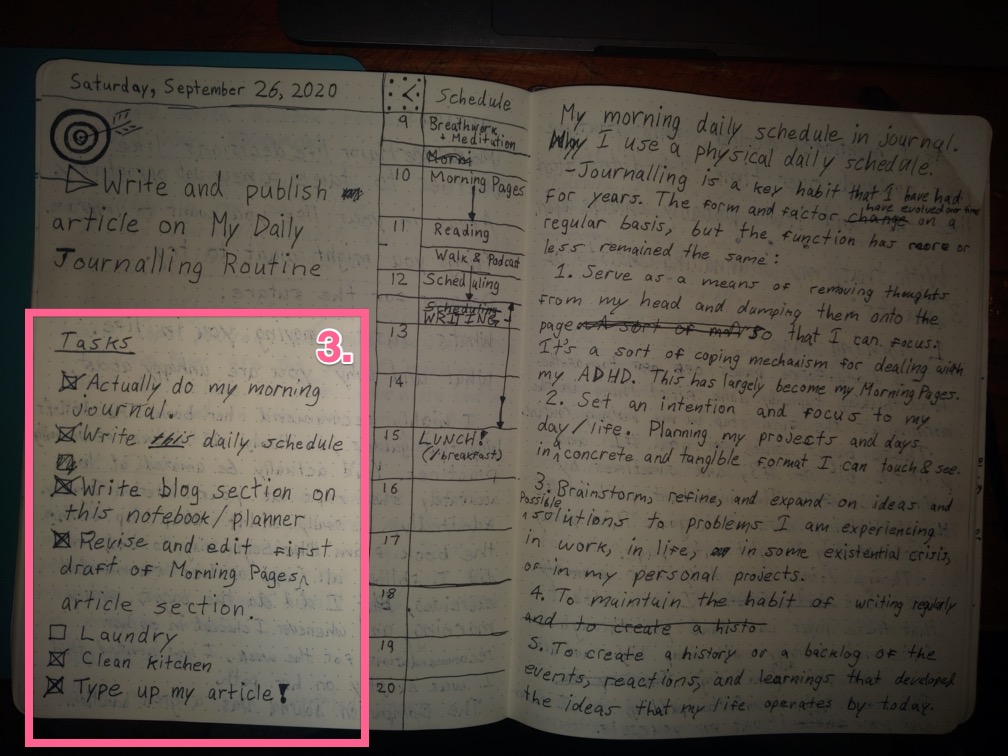 Saturday, September 26, 2020
Write and publish
article on My Daily
Journalling Routine
3.
Tasks
Actually do my morning
journal.
Write this daily schedule
Write blog section on
this notebook/planner
Revise and edit first
draft of Morning Pages
article section.
Laundry
Clean kitchen
Type up my article!
Schedule
9 Breathwork
+ Meditution
Morni
10 Morning Pages
11 Reading
Walk & Podcast
12 Scheduling
Scheduling
WRITING
13
14
15 LUNCH!
(/breakfast)
16
17
18
19
20
My morning daily schedule in journal.
Why I use a physical daily schedule.
-Journalling is a key habit that I have had
for years. The form and factor change have evolved over time on a
regular basis, but the function has more or
less remained the same:
1. Serve as a means of removing thoughts
from my head and dumping them onto the
page so that I can focus.
It's a sort of coping mechanism for dealing with
my ADHD. This has largely become my Morning Pages.
2. Set an intention and focus to my
day/life. Planning my projects and days
in a concrete and tangible format I can touch & see.
3. Brainstorm, refine, and expand on ideas and
possible solutions to problems I am experiencing
in work, in life, in some existential crisis,
or in my personal projects.
4. To maintain the habit of writing regularly
and to create a histo
5. To create a history or a backlog of the
events, reactions, and learnings that developed
the ideas that my life operates by today.